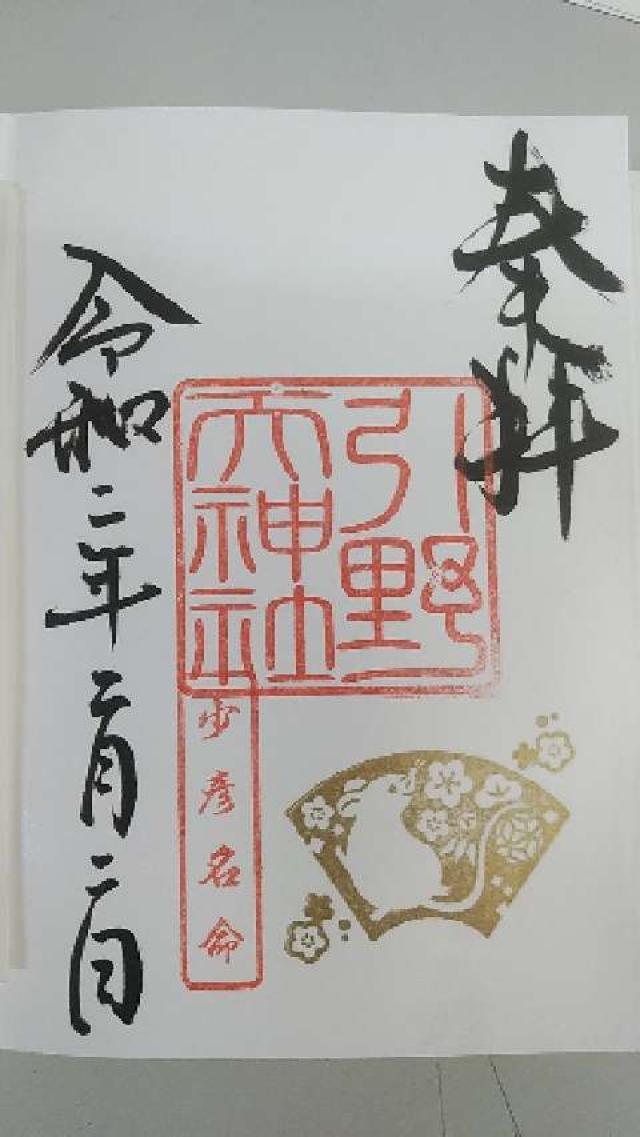 奉拝
引野
天神社
少彦名命
令和二年二月二日